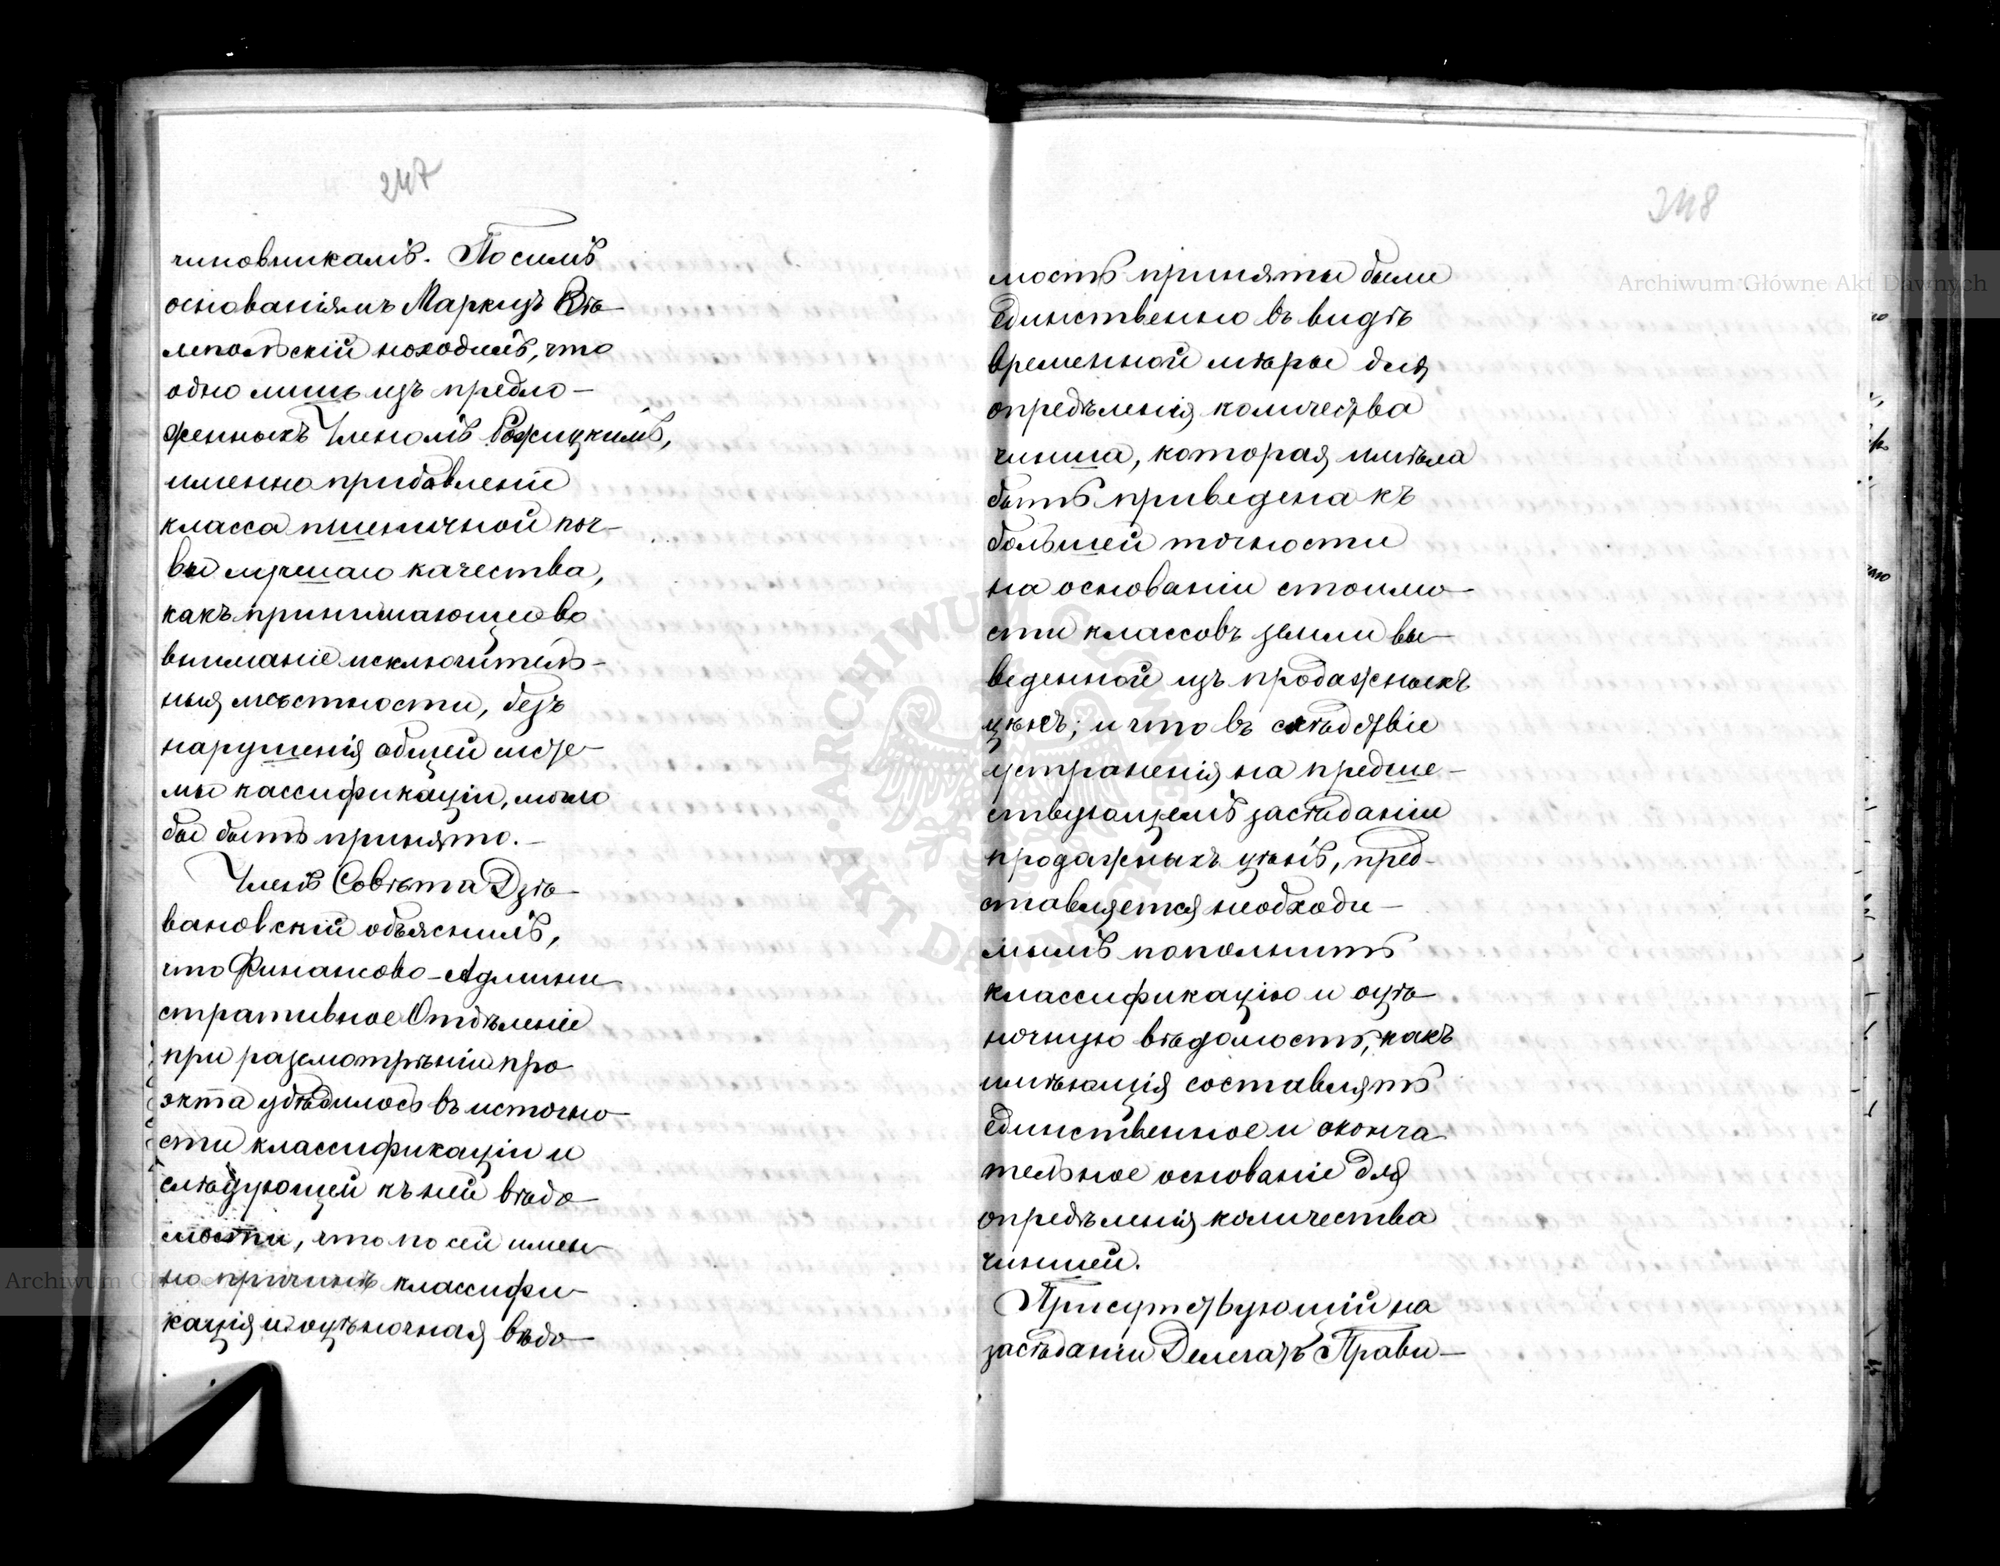 247
чиновникамъ. По симъ
основаніямъ Маркизъ Вѣ-
лепольскій находилъ, что
одно лишь изъ предло-
женныхъ Членомъ Рожицкимъ,
именно прибавленіе
класса пшеничной поч-
вы лучшаго качества,
какъ принимающее во
вниманіе исключитель-
ныя мѣстности, безъ
нарушенія общей схе-
мы кассификаціи, могло
бы быть принято.-
Членъ Совѣта Дзѣ-
вановскій объяснилъ,
что Финансово-Админи
стративное Отдѣленіе
при разсмотрѣніи про
экта убѣдилось въ неточно-
сти классификаціи и
слѣдующей къ ней вѣдо-
мости, что по сей имен-
но причинѣ классифи-
кація и оцѣночная вѣдо-
248
мость приняты были
единственно въ видѣ
временной мѣры для
опредѣленія количества
чинша, которая имѣла
быть приведена къ
большей точности
на основаніи стоимо-
сти классовъ земли вы-
веденной изъ продажныхъ
цѣнъ; и что въ слѣдствіе
устраненія на предше-
ствующемъ засѣданіи
продажныхъ цѣнъ, пред-
ставляется необходи-
мымъ пополнить
классификацію и оцѣ-
ночную вѣдомость, какъ
имѣющія составлять
единственное и оконча
тельное основаніе для
опредѣленія количества
чиншей.
Присутствующій на
засѣданіи Делегатъ Прави-
Archiwum Główne Akt Dawnych
ARCHIWUM GŁÓWNE
AKT DAWNYCH